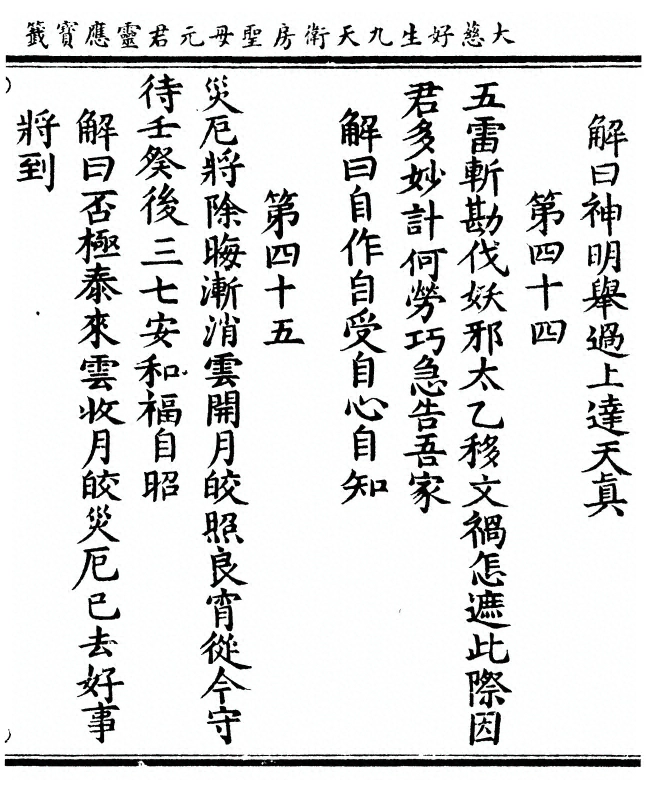 大慈好生九天衛房聖母元君靈應寶籤
解曰神明舉過上達天眞
第四十四
五雷斬勘伐妖邪太乙移文禍怎遮此際因
君多妙計何勞巧急告吾家
解曰自作自受自心自知
第四十五
災厄將除晦漸消雲開月皎照良宵從今守
待壬癸後三七安和福自昭
解曰否極泰來雲收月皎災厄已去好事
將到